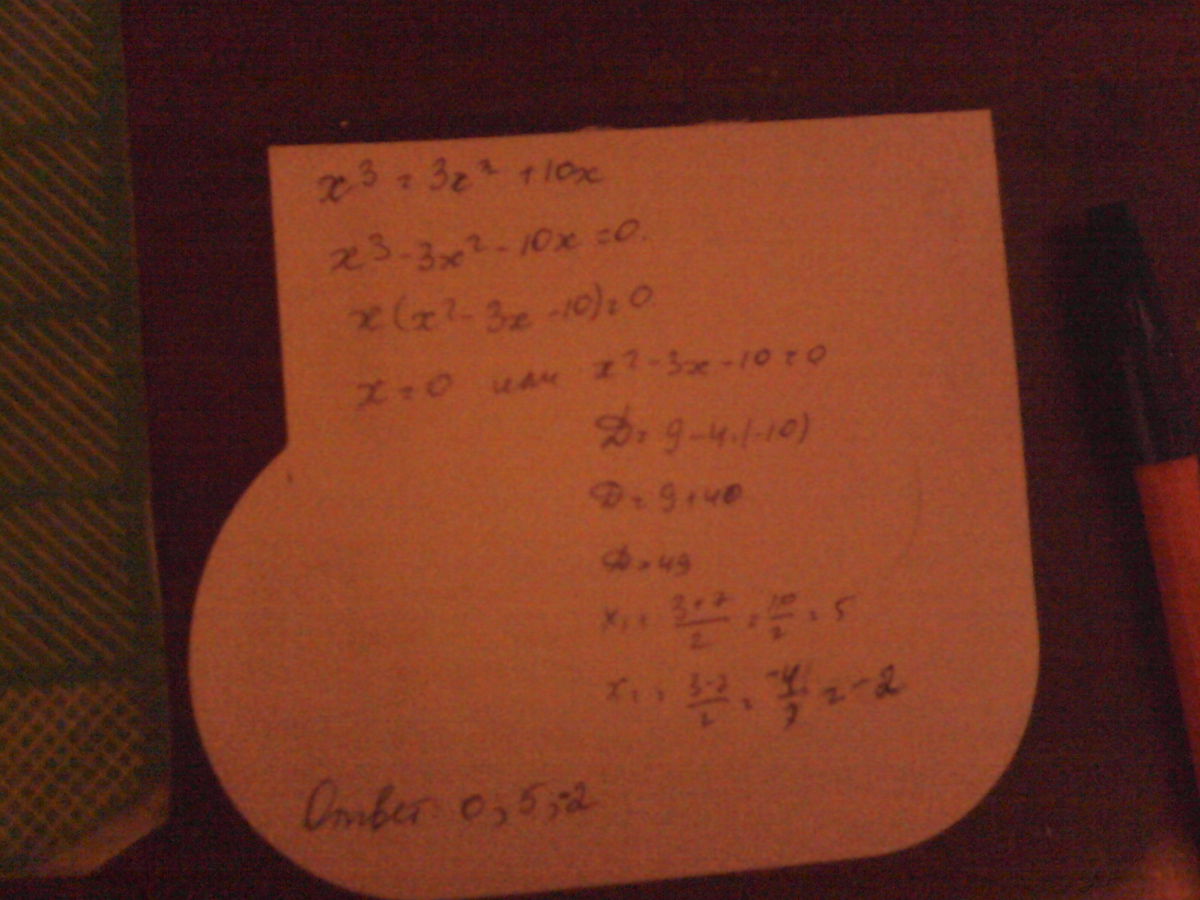 x³ = 3x² + 10x
x³ - 3x² - 10x = 0.
x(x² - 3x - 10) = 0
x = 0 или x² - 3x - 10 = 0
D = 9 - 4·(-10)
D = 9 + 40
D = 49
x₁ = (3+7)/2 = 10/2 = 5
x₂ = (3-7)/2 = -4/2 = -2
Ответ: 0; 5; -2